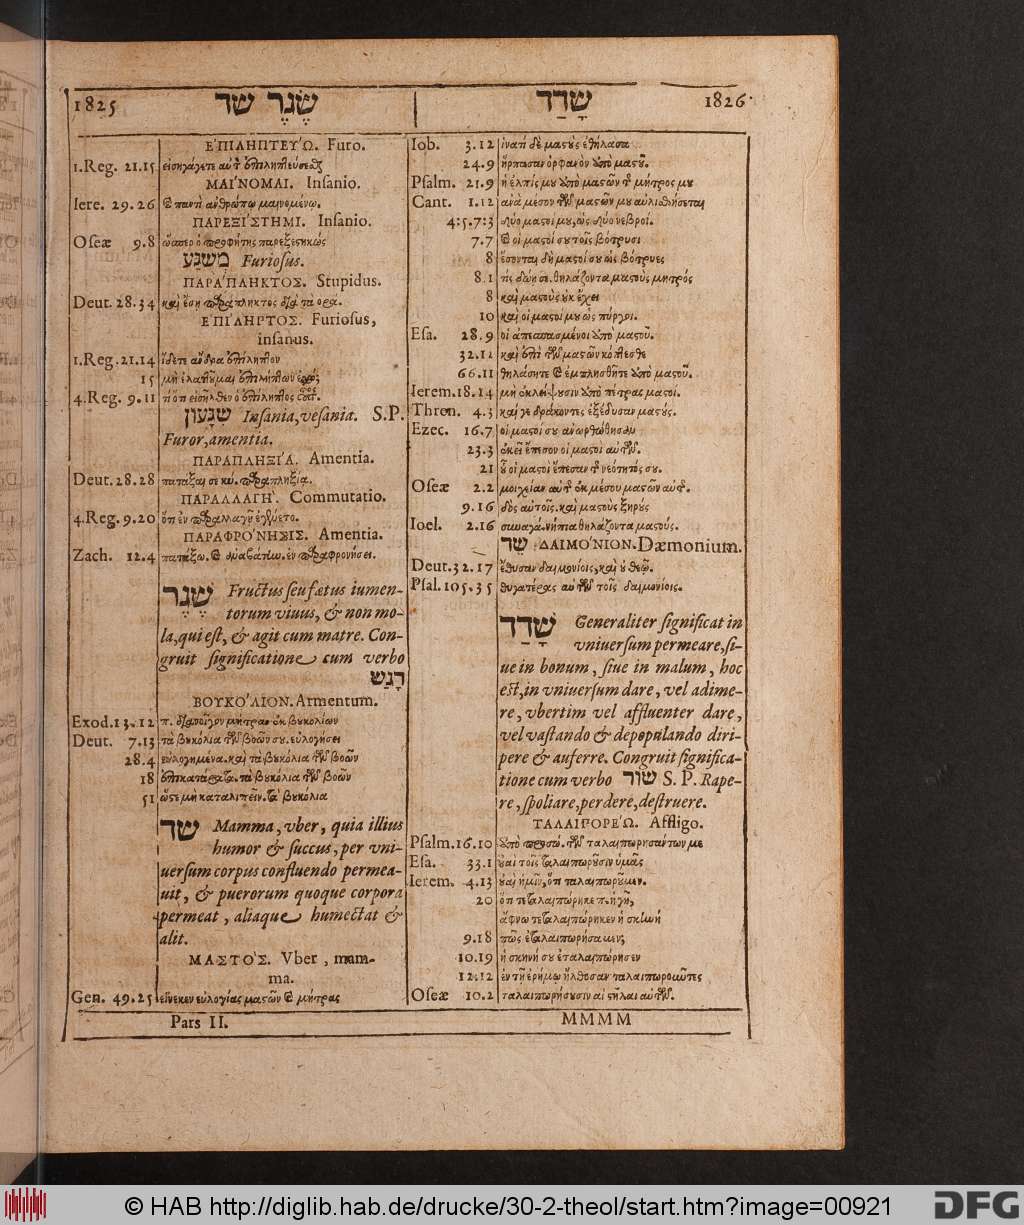 1825 שֶׁגֶר שד
שָׁדַד 1826
ἘΠΙΛΗΠΤΕΎΩ. Furo.
1.Reg. 21.15 εἰσηγάγετε αὐτὸν ἐπιληπτεύσεσθαι
ΜΑΊΝΟΜΑΙ. Insanio.
Iere. 29.26 καὶ παντὶ ἀνθρώπῳ μαινομένῳ.
ΠΑΡΕΞΊΣΤΗΜΙ. Insanio.
Oseæ 9.8 ὥσπερ ὁ προφήτης παρεξεστηκὼς
משגע Furiosus.
ΠΑΡΆΠΛΗΚΤΟΣ. Stupidus.
Deut. 28.34 καὶ ἔσῃ παράπληκτος διὰ τὰ ορα.
ἘΠΊΛΗΡΤΟΣ. Furiosus,
insanus.
1.Reg. 21.14 ἴδετε ἄνδρα ἐπίληπτον
15 μὴ ἐλαττοῦμαι ἐπιλήπτων
4.Reg. 9.11 τί ὅτι εἰσῆλθεν ὁ ἐπίληπτος
שגעון Insania, vesania. S.P.
Furor, amentia.
ΠΑΡΑΠΛΗΞΊΑ. Amentia.
Deut. 28.28 πατάξαι σε κυ. παραπληξίᾳ.
ΠΑΡΑΛΛΑΓΉ. Commutatio.
4.Reg. 9.20 ὅτι ἐν παραλλαγῇ ἐγένετο.
ΠΑΡΑΦΡΌΝΗΣΙΣ. Amentia.
Zach. 12.4 πατάξω. καὶ ἀναβάτην. ἐν παραφρονήσει.
שֶׁגֶר Fructus seu fœtus iumen-
torum viuus, & non mo-
la, qui est, & agit cum matre. Con-
gruit significatione cum verbo
רָגַשׁ
ΒΟΥΚΌΛΙΟΝ. Armentum.
Exod. 13.12 π. διανοῖγον μήτραν ἐκ βουκολίων
Deut. 7.13 τὰ βουκόλια τῶν βοῶν σου. εὐλογήσει
28.4 εὐλογημένα. καὶ τὰ βουκόλια τῶν βοῶν
18 ἐπικατάρατα. τὰ βουκόλια τῶν βοῶν
51 ὥστε μὴ καταλιπεῖν. τὰ βουκόλια
שד Mamma, vber, quia illius
humor & succus, per vni-
uersum corpus confluendo permea-
uit, & puerorum quoque corpora
permeat, aliaque humectat &
alit.
ΜΑΣΤΌΣ. Vber, mam-
ma.
Gen. 49.25 εἵνεκεν εὐλογίας μαστῶν καὶ μήτρας
Pars II.
Iob. 3.12 ἱνατί δὲ μαστοὺς ἐθήλασα
24.9 ἥρπασαν ὀρφανὸν ἀπὸ μαστοῦ.
Psalm. 21.9 ἡ ἐλπίς μου ἀπὸ μαστῶν τῆς μητρός μου
Cant. 1.12 ἀνὰ μέσον τῶν μαστῶν μου αὐλισθήσεται
4:5.7:3 δύο μαστοί μου, ὡς δύο νεβροί.
7.7 καὶ οἱ μαστοί σου τοῖς βότρυσι
8 ἔσονται δὴ μαστοί σου ὡς βότρυες
8.1 τίς δώῃ σε. θηλάζοντα μαστοὺς μητρός
8 καὶ μαστοὺς οὐκ ἔχει
10 καὶ οἱ μαστοί μου ὡς πύργοι.
Esa. 28.9 οἱ ἀπεσπασμένοι ἀπὸ μαστοῦ.
32.12 καὶ ἐπὶ τῶν μαστῶν κόπτεσθε
66.11 θηλάσητε καὶ ἐμπλησθῆτε ἀπὸ μαστοῦ.
Ierem. 18.14 μὴ ἐκλείψουσιν ἀπὸ πέτρας μαστοί.
Thren. 4.3 καί γε δράκοντες ἐξέδυσαν μαστούς.
Ezec. 16.7 οἱ μαστοί σου ἀνωρθώθησαν
23.3 ἐκεῖ ἔπεσον οἱ μαστοὶ αὐτῶν.
21 οὗ οἱ μαστοὶ ἔπεσαν τῆς νεότητός σου.
Oseæ 2.2 μοιχείαν αὐτῆς ἐκ μέσου μαστῶν αὐτῆς.
9.16 δὸς αὐτοῖς. καὶ μαστοὺς ξηρούς
Ioel. 2.16 συναγά. νήπια θηλάζοντα μαστούς.
שֵׁד ΔΑΙΜΌΝΙΟΝ. Dæmonium.
Deut. 32.17 ἔθυσαν δαιμονίοις, καὶ οὐ θεῷ.
Psal. 105.35 θυγατέρας αὐτῶν τοῖς δαιμονίοις.
שָׁדַד Generaliter significat in
vniuersum permeare, si-
ue in bonum, siue in malum, hoc
est, in vniuersum dare, vel adime-
re, vbertim vel affluenter dare,
vel vastando & depopulando diri-
pere & auferre. Congruit significa-
tione cum verbo שוד S. P. Rape-
re, spoliare, perdere, destruere.
ΤΑΛΑΙΠΟΡΕΏ. Affligo.
Psalm. 16.10 ἀπὸ προσώ. τῶν ταλαιπωρησάντων με
Esa. 33.1 οὐαὶ τοῖς ταλαιπωροῦσιν ὑμᾶς
Ierem. 4.13 οὐαὶ ἡμῖν, ὅτι ταλαιπωροῦμεν.
20 ὅτι τεταλαιπώρηκε π. ἡ γῆ,
ἄφνω τεταλαιπώρηκεν ἡ σκηνή
9.18 πῶς ἐταλαιπωρήσαμεν;
10.19 ἡ σκηνή σου ἐταλαιπώρησεν
12.12 ἐν τῇ ἐρήμῳ ἤλθοσαν ταλαιπωροῦντες
Oseæ 10.2 ταλαιπωρήσουσιν αἱ στῆλαι αὐτῶν.
MMMM
© HAB http://diglib.hab.de/drucke/30-2-theol/start.htm?image=00921
DFG